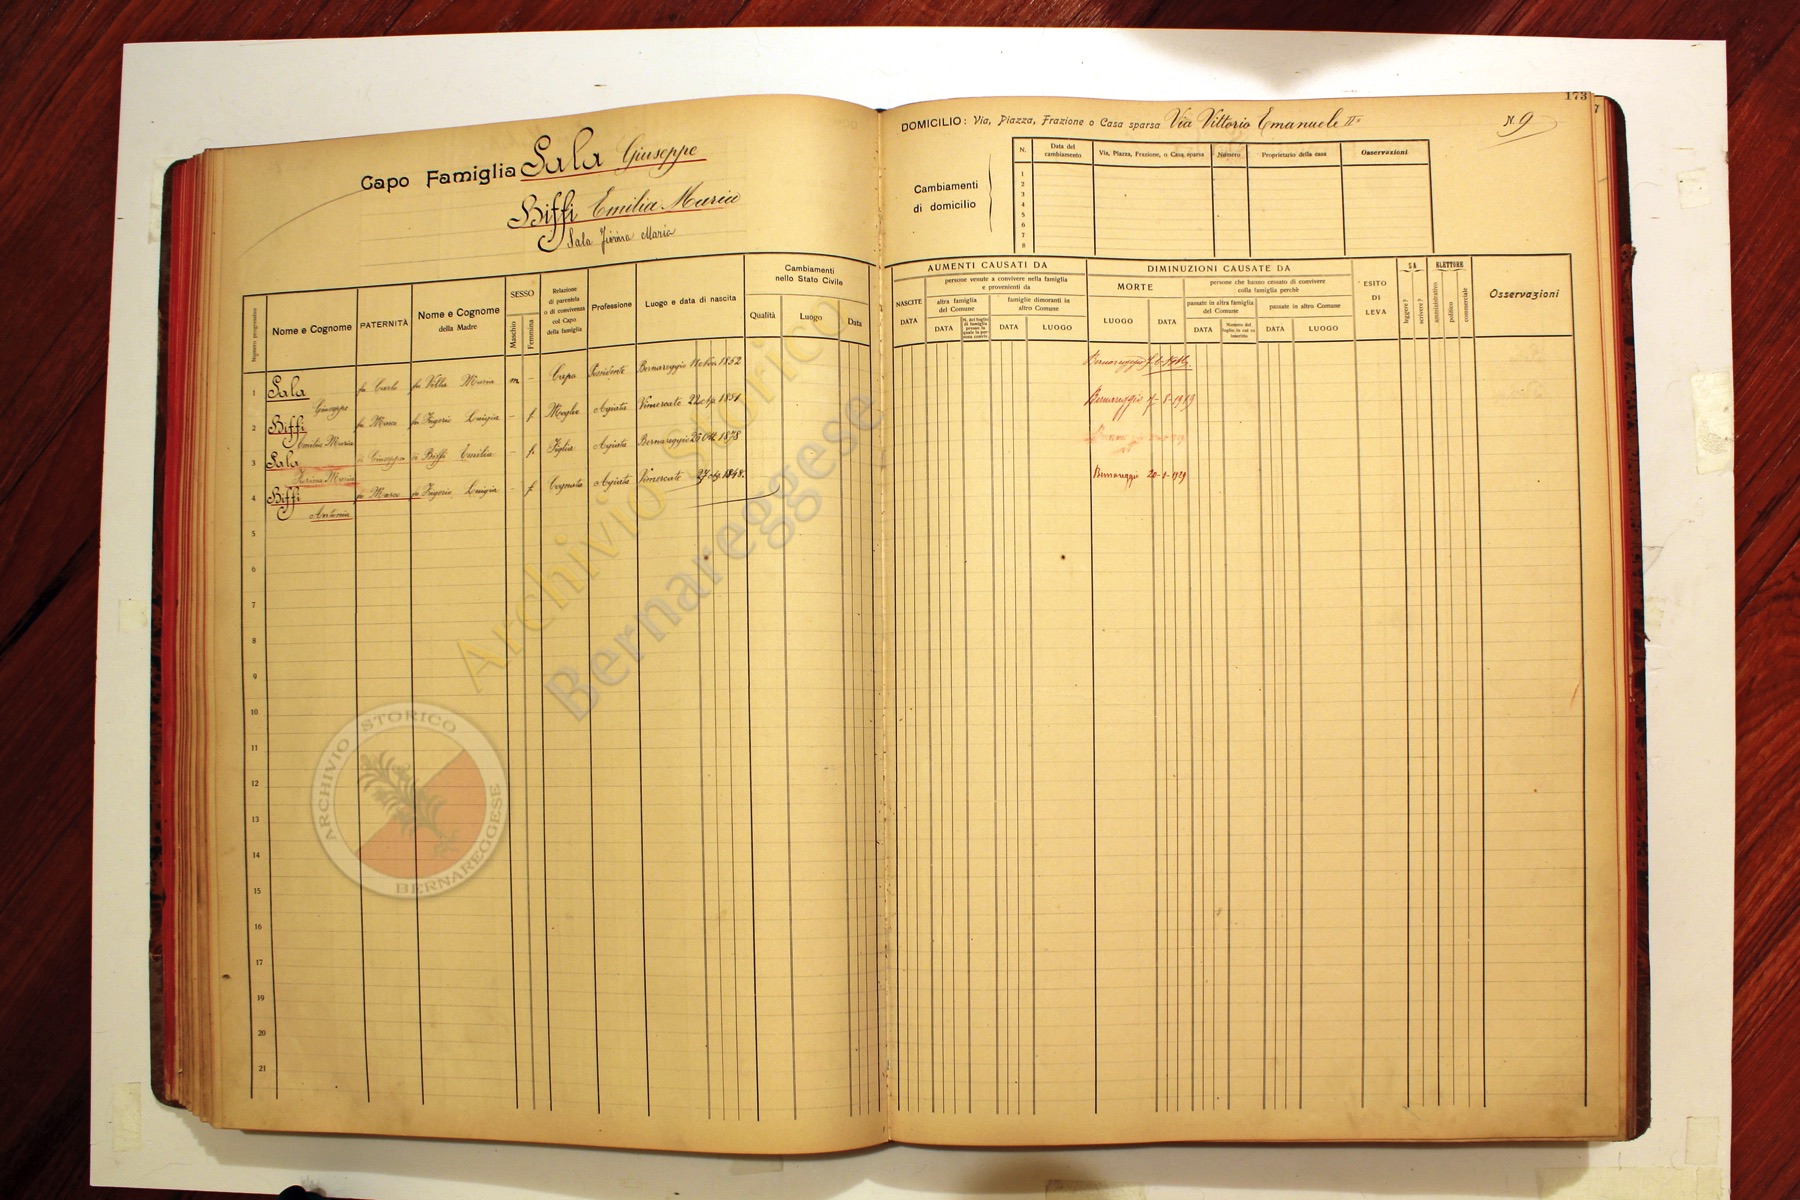 173
7
Capo Famiglia Sala Giuseppe
Biffi Emilia Maria
Sala Maria
DOMICILIO: Via, Piazza, Frazione o Casa sparsa Via Vittorio Emanuele II° N. 9
Cambiamenti
di domicilio
N.
Data del
cambiamento
Via, Piazza, Frazione, o Casa sparsa
Numero
Proprietario della casa
Osservazioni
1
2
3
4
5
6
7
8
Numero progressivo
Nome e Cognome
PATERNITÀ
Nome e Cognome
della Madre
SESSO
Maschio
Femmina
Relazione
di parentela
o di convivenza
col Capo
della famiglia
Professione
Luogo e data di nascita
Cambiamenti
nello Stato Civile
Qualità
Luogo
Data
AUMENTI CAUSATI DA
NASCITE
DATA
persone venute a convivere nella famiglia
e provenienti da
altra famiglia
del Comune
DATA
N. del foglio
di famiglia
famiglie dimoranti in
altro Comune
DATA
LUOGO
DIMINUZIONI CAUSATE DA
MORTE
LUOGO
DATA
persone che hanno cessato di convivere
colla famiglia perchè
passate in altra famiglia
del Comune
DATA
Numero del
foglio in cui si
inscritto
passate in altro Comune
DATA
LUOGO
ESITO
DI
LEVA
SA
leggere?
scrivere?
ELETTORE
amministrativo
politico
commerciale
Osservazioni
1 Sala fu Carlo fu Villa Maria m - Capo Possidente Bernareggio 11 1852 Bernareggio
Giuseppe
2 Biffi fu Marco fu Frigerio Luigia - f. Moglie Agiata Vimercate 22 1851 Bernareggio 8-1919
Emilia Maria
3 Sala di Giuseppe di Biffi Emilia - f. Figlia Agiata Bernareggio 25 Ott. 1878
Maria
4 Biffi fu Marco fu Frigerio Luigia - f. Cognata Agiata Vimercate 27 1848. Bernareggio 20-1-1929
Antonia
5
6
7
8
9
10
11
12
13
14
15
16
17
19
20
21
Archivio Storico
Bernareggese
ARCHIVIO STORICO
BERNAREGGESE